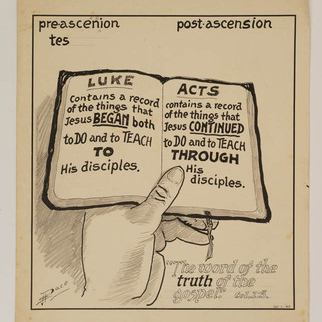 pre-ascenion
post-ascension
tes
LUKE
Contains a record
of the things that
Jesus BEGAN both
to DO and to TEACH
TO
His disciples.
ACTS
contains a record
of the things that
Jesus CONTINUED
to DO and to TEACH
THROUGH
His
disciples.
"The word of the
truth of the
gospel."
Pace